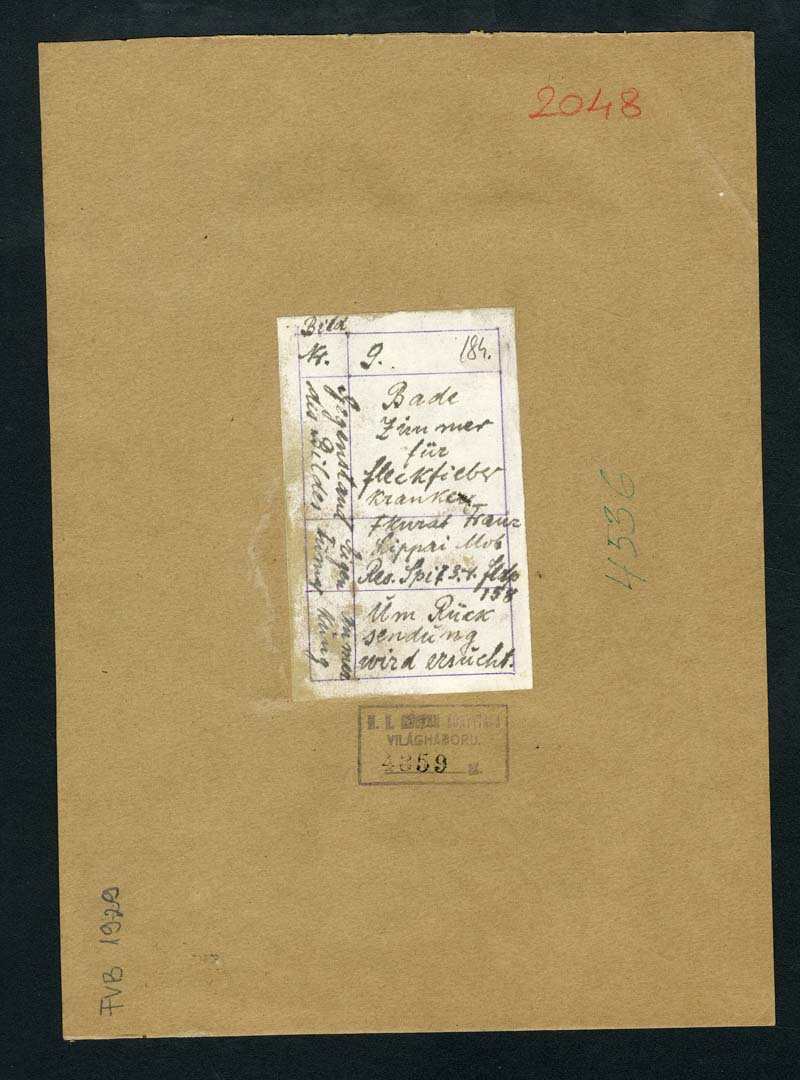 2048
Bild
Nr.
9.
184.
Gegenstand
des Bildes
Bade
Zimmer
für
fleckfieber
kranke
Eigen
tümer
Franz
Lippai Mob
Res. Spit 3/4. fldp
158
Anmer
kung
Um Rück
sendung
wird ersucht.
VILÁGHÁBORU.
4359
4336
FVB 1929